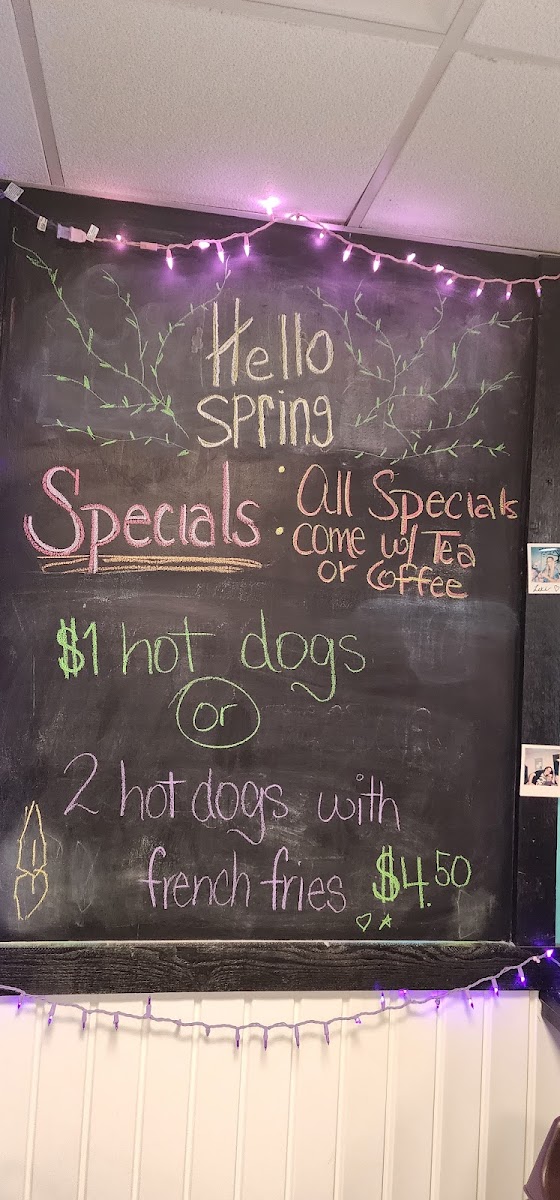 Hello
spring
Specials
All Specials
come w/ Tea
or Coffee
$1 hot dogs
or
2 hot dogs with
french fries $4.50